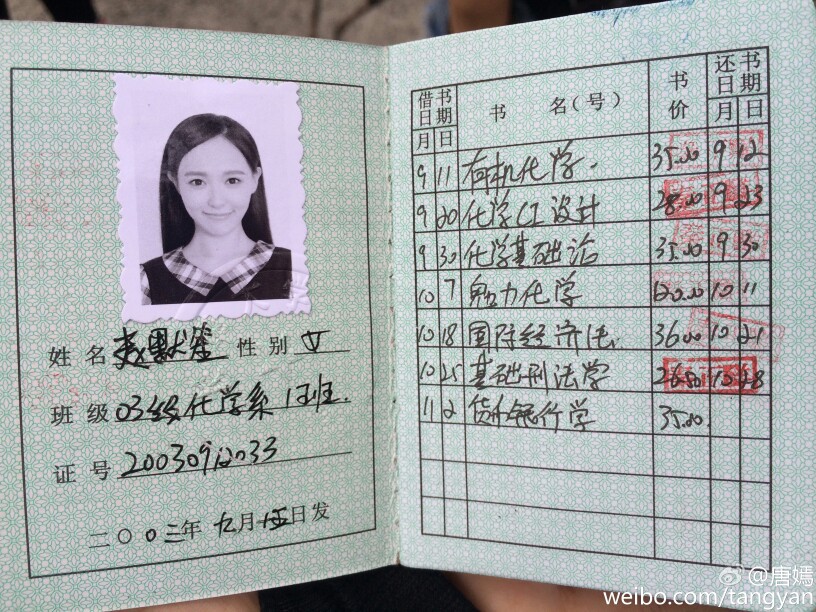 姓名 赵默笙 性别 女
班级 03级化学系1班.
证号 2003091033
二〇〇三年九月 日发
借书日期 书名(号) 书价 还书日期
月 日 月 日
9 11 有机化学. 35.00 9 12
9 20 化学CI设计 28.00 9 23
9 30 化学基础论 35.00 9 30
10 7 化学 120.00 10 11
10 18 国际经济法. 36.00 10 21
10 25 基础刑法学 26.80 10 28
11 2 货币银行学 35.00.
@唐嫣
weibo.com/tangyan